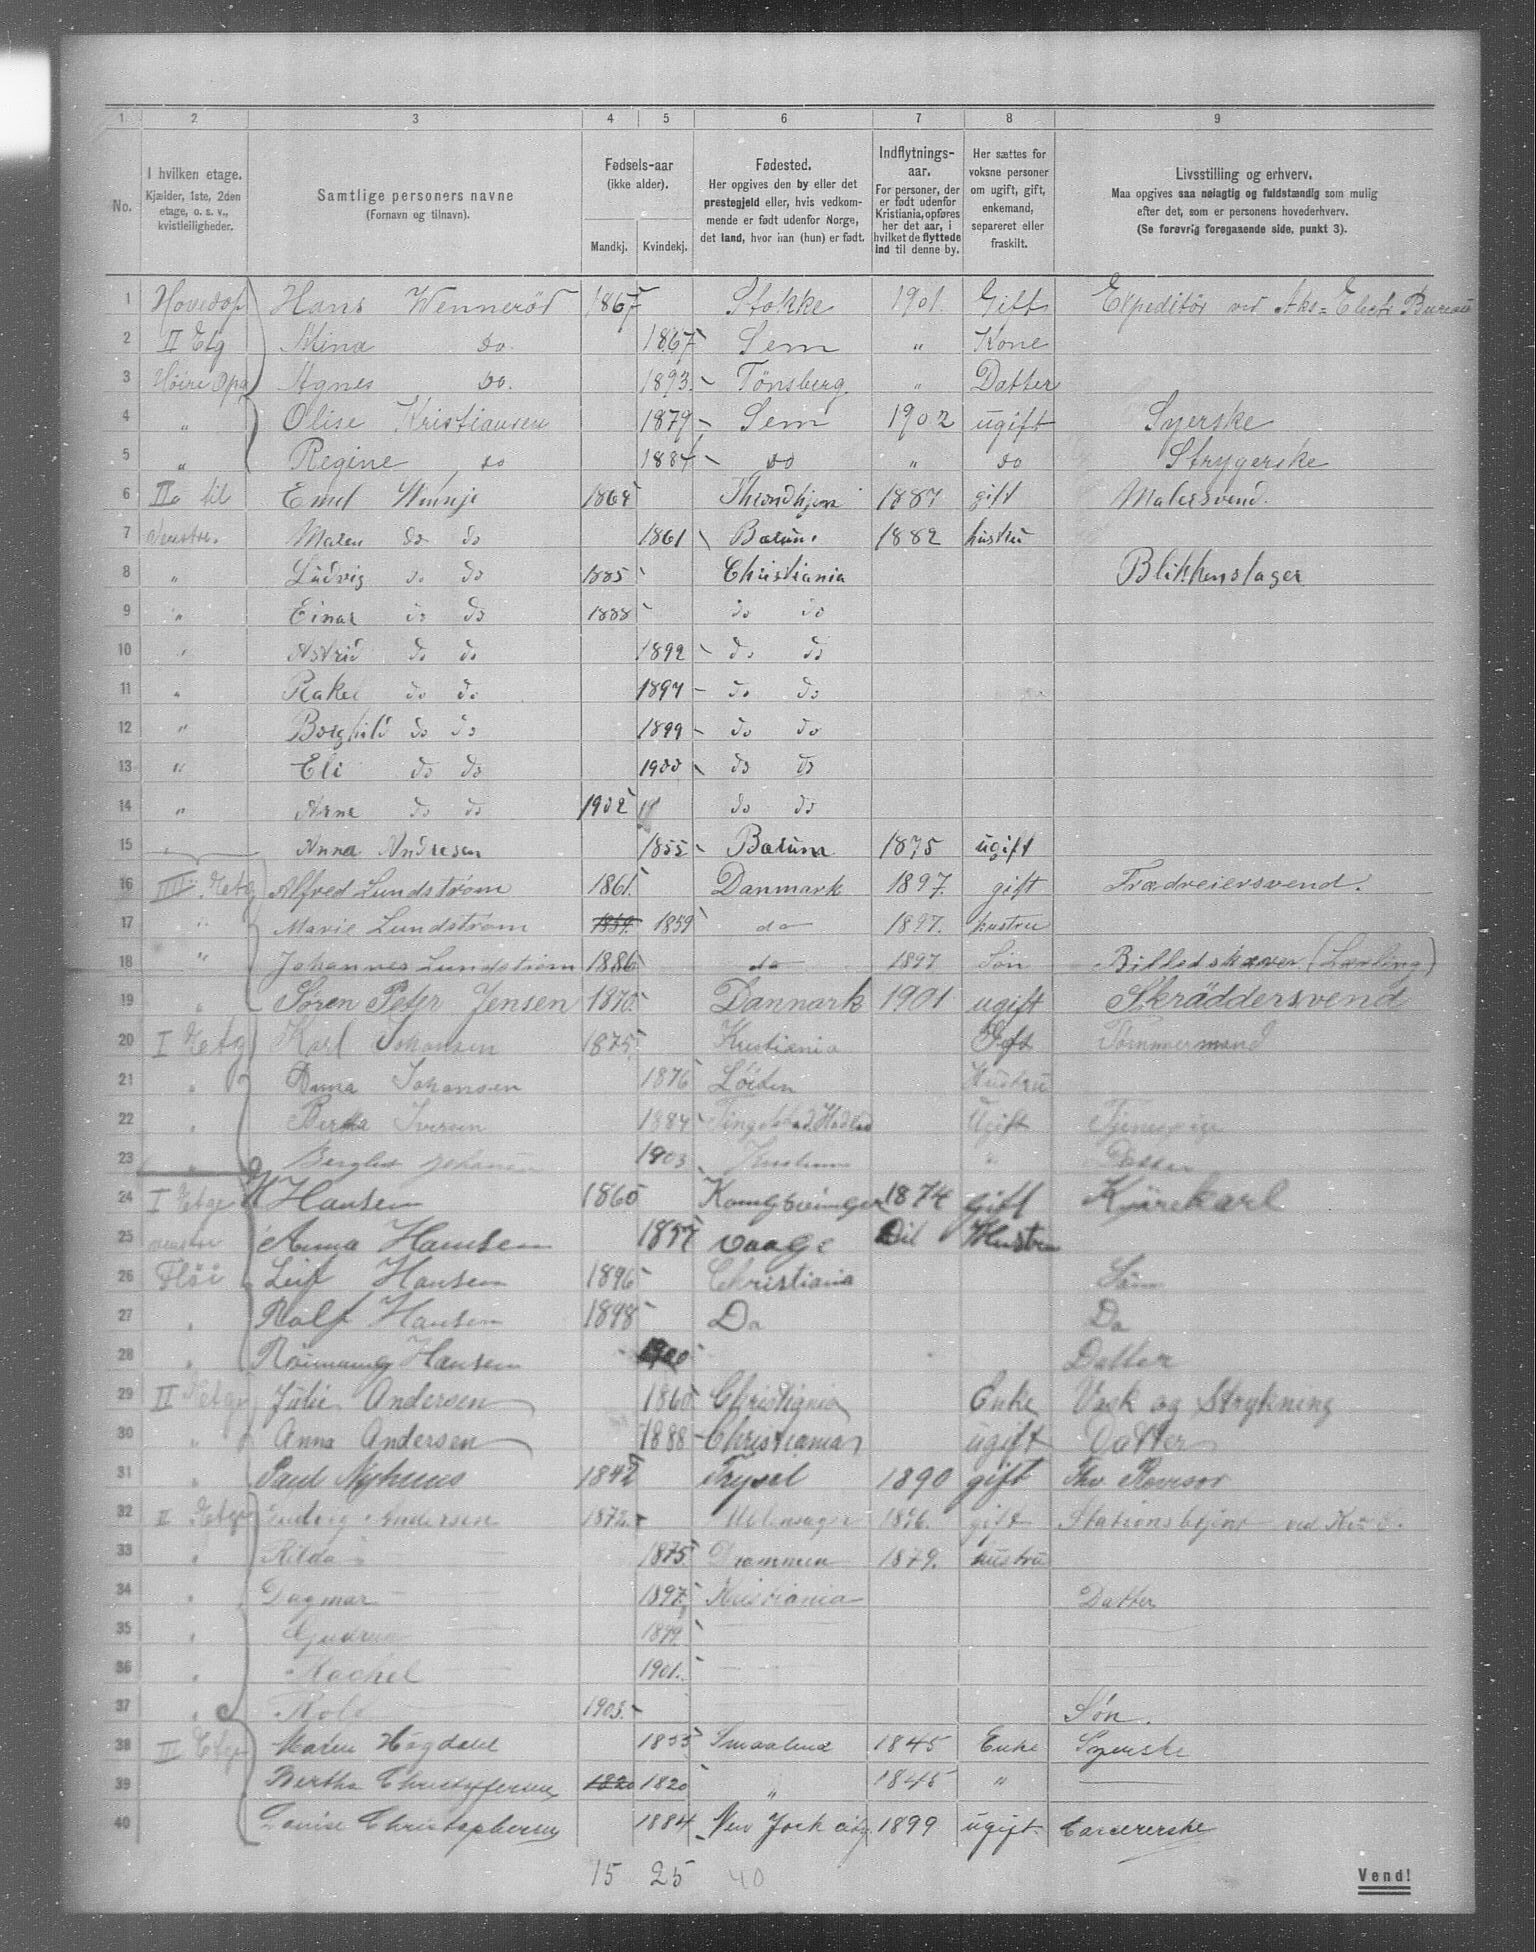 1 2 3 4 5 6 7 8 9
No.
I hvilken etage.
Kjælder, 1ste, 2den
etage, o. s. v.,
kvistleiligheder.
Samtlige personers navne
(Fornavn og tilnavn).
Fødsels-aar
(ikke alder).
Mandkj. Kvindekj.
Fødested.
Her opgives den by eller det
prestegjeld eller, hvis vedkom-
mende er født udenfor Norge,
det land, hvor han (hun) er født.
Indflytnings-
aar.
For personer, der
er født udenfor
Kristiania, opføres
her det aar, i
hvilket de flyttede
ind til denne by.
Her sættes for
voksne personer
om ugift, gift,
enkemand,
separeret eller
fraskilt.
Livsstilling og erhverv.
Maa opgives saa nøiagtig og fuldstændig som mulig
efter det, som er personens hovederhverv.
(Se forøvrig foregaaende side, punkt 3).
1 Hovedop Hans Wennerød 1867 Stokke 1901. Gift Expeditør ved Aks= Elect Bureau
2 II Etg Mina do 1867 Sem " Kone
3 Høire Opg Agnes do. 1893 Tønsberg " Datter
4 " Olise Kristiansen 1879 Sem 1902 ugift Syerske
5 " Regine do 1884 do " do Strygerske
6 IIa til Emil 1864 Throndhjem 1887 gift Malersvend.
7 Venstre. Maren do do 1861 Bærum. 1882 hustru
8 " Ludvig do do 1885 Christiania Blikkenslager
9 " Einar do do 1888 do do
10 " Astrid do do 1892 do do
11 " Rakel do do 1897 do do
12 " Borghild do do 1899 do do
13 " Eli do do 1900 do do
14 " Arne do do 1902 do do
15 Anna Andresen 1855 Bærum 1875 ugift
16 III Etg Alfred Lundstrøm 1861. Danmark 1897. gift Trædreiersvend.
17 " Marie Lundstrøm 1859 1859 do 1897. hustru
18 " Johannes Lundstrøm 1886 do 1897 Søn Billedskærer (Lærling)
19 " Søren Peter Jensen 1870 Danmark 1901 ugift Skräddersvend
20 I Etg Karl Johansen 1875 Kristiania Gift Tømmermand
21 " Anna Johansen 1876 Løiten Hustru
22 " Berta Iversen 1884 Ugift Tjenepige
23 " Johansen 1903 " Datter
24 I Etge Hansen 1860 Kongsvinger 1874 gift Kjörekarl
25 venstre Anna Hansen 1857 Vaage Dil Hustru
26 Flöi Leif Hansen 1896 Christiania Sön
27 " Rolf Hansen 1898 Do Do
28 " Hansen 1900 Datter
29 II Etge Julie Andersen 1860 Christiania Enke Vask og Strykning
30 " Anna Andersen 1888 Christiania ugift Datter
31 " Paul Nyhuus 1842 Trysil 1890 gift
32 II Etge Ludvig Andersen 1872. 1876. gift Stationsbetjent ved
33 " Hilda 1875. Drammen 1879. hustru
34 " Dagmar 1897. Kristiania Datter
35 " Gudrun 1899.
36 " Rachel 1901.
37 " Rolf 1903. Søn.
38 II Etge Maren Høgdahl 1833 Smaalene 1845 Enke Syerske
39 Bertha Christoffersen 1820 1820 " 1845 "
40 Louise Christophersen 1884 New York 1899 ugift
15 25 40
Vend!